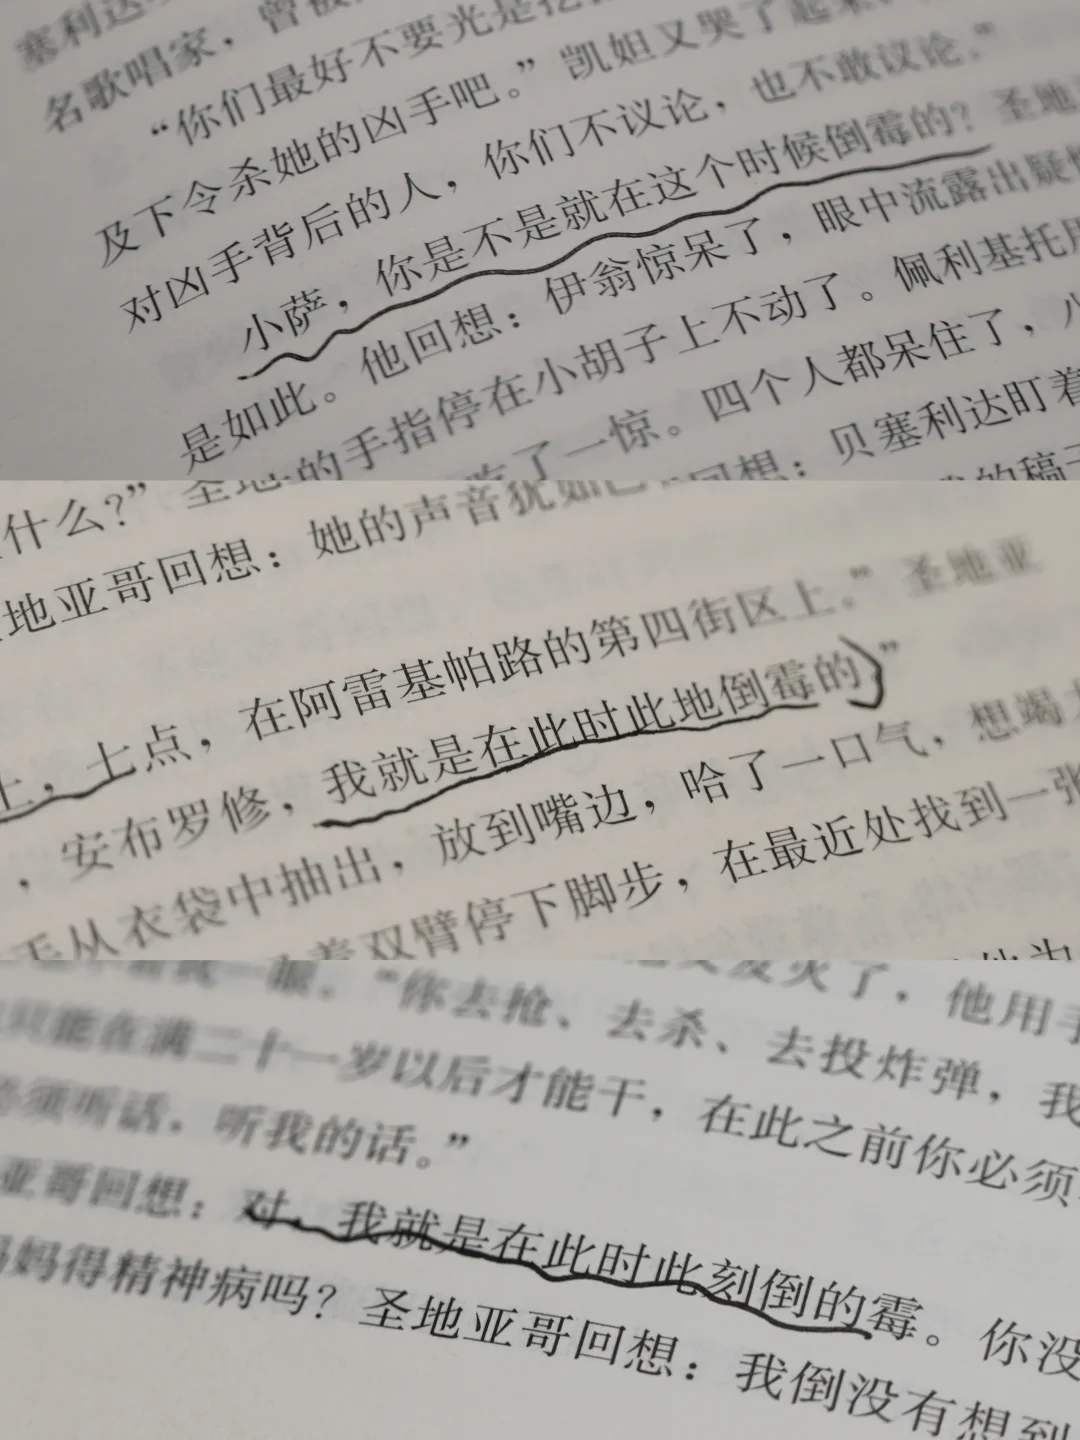 塞利达
名歌唱家，曾被
“你们最好不要光是
及下令杀她的凶手吧。”凯妲又哭了起来
对凶手背后的人，你们不议论，也不敢议论。”
小萨，你是不是就在这个时候倒霉的？圣地
是如此。他回想：伊翁惊呆了，眼中流露出疑
圣地的手指停在小胡子上不动了。佩利基托
吃了一惊。四个人都呆住了，
回想：贝塞利达盯着
的稿子
什么？”圣地
地亚哥回想：她的声音犹如
上，七点，在阿雷基帕路的第四街区上。”圣地亚
，安布罗修，我就是在此时此地倒霉的”
从衣袋中抽出，放到嘴边，哈了一口气，想竭
着双臂停下脚步，在最近处找到一张
我一眼。“你去抢、去杀、去投炸弹，我
发火了，他用手
只能在满二十一岁以后才能干，在此之前你必须
必须听话，听我的话。”
亚哥回想：对，我就是在此时此刻倒的霉。你没
妈妈得精神病吗？圣地亚哥回想：我倒没有想到